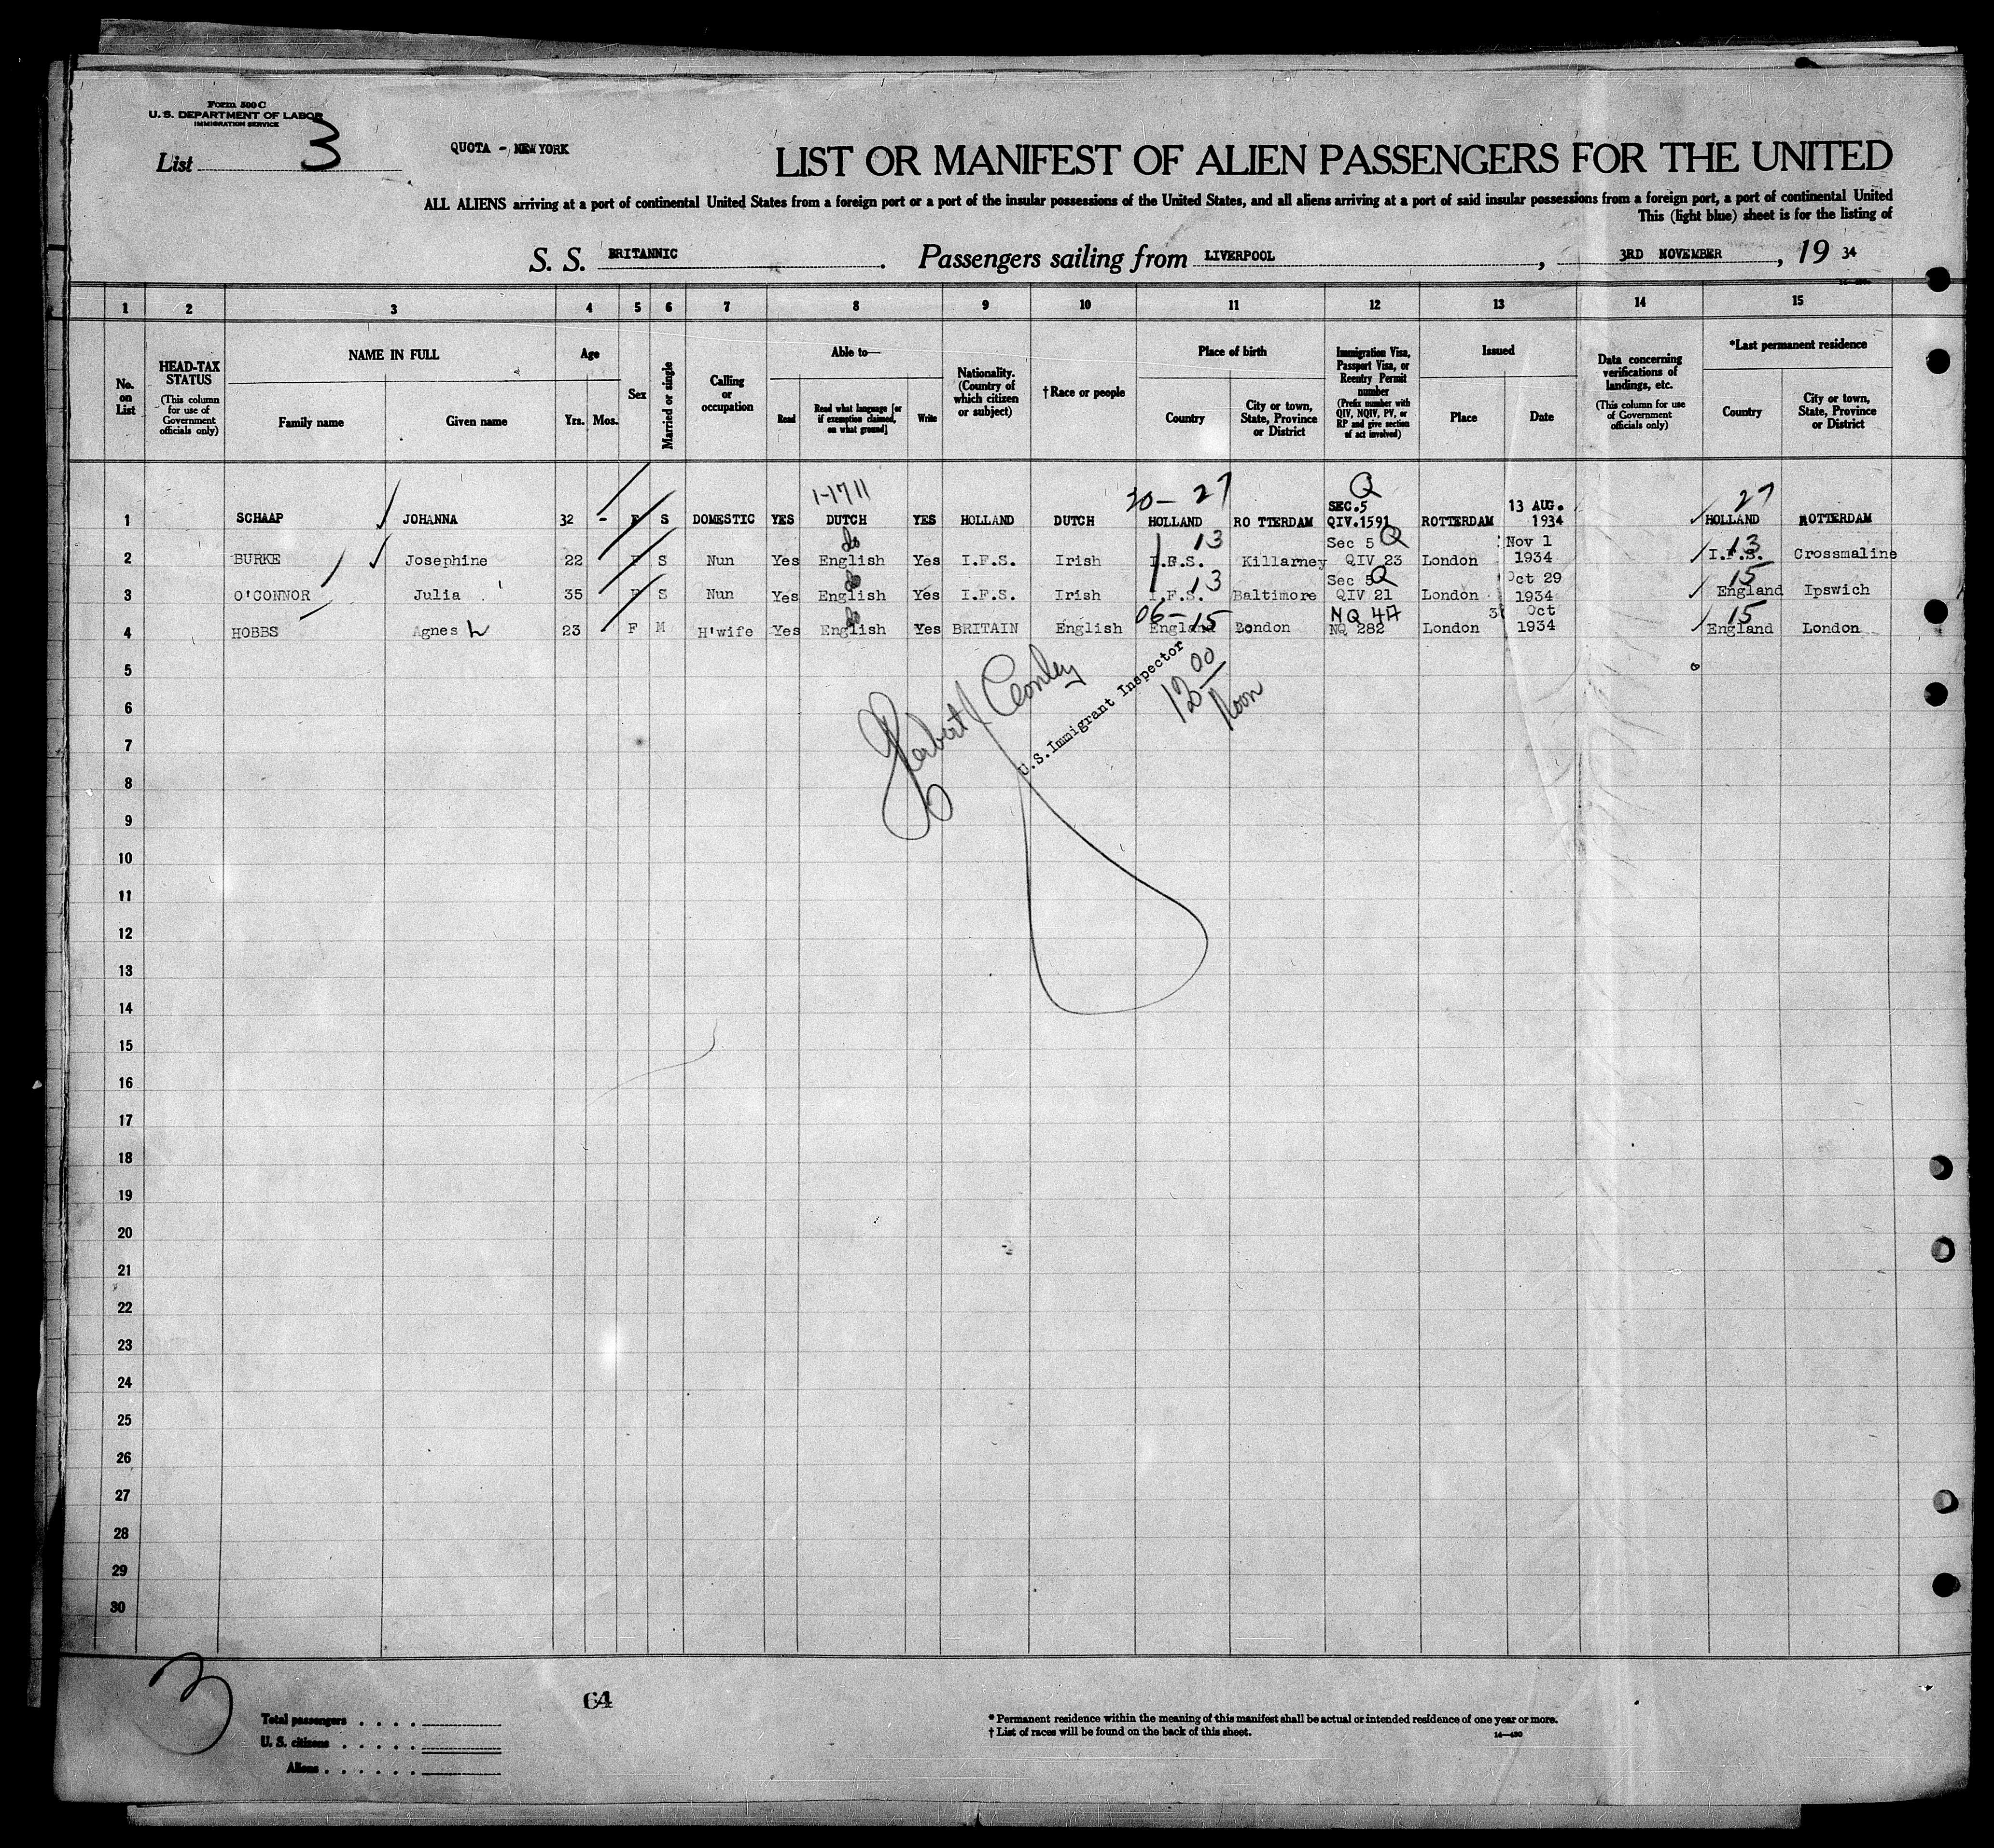 Form 500 C
U. S. DEPARTMENT OF LABOR
IMMIGRATION SERVICE
List 3
QUOTA - NEW YORK
LIST OR MANIFEST OF ALIEN PASSENGERS FOR THE UNITED
ALL ALIENS arriving at a port of continental United States from a foreign port or a port of the insular possessions of the United States, and all aliens arriving at a port of said insular possessions from a foreign port, a port of continental United
This (light blue) sheet is for the listing of
S. S. BRITANNIC . Passengers sailing from LIVERPOOL , 3RD NOVEMBER , 19 34
1 2 3 4 5 6 7 8 9 10 11 12 13 14 15
No. on List
HEAD-TAX STATUS
(This column for use of Government officials only)
NAME IN FULL
Family name Given name
Age
Yrs. Mos.
Sex
Married or single
Calling or occupation
Able to—
Read
Read what language [or if exemption claimed, on what ground]
Write
Nationality. (Country of which citizen or subject)
†Race or people
Place of birth
Country
City or town, State, Province or District
Immigration Visa, Passport Visa, or Reentry Permit number
(Prefix number with QIV, NQIV, PV, or RP and give section of act involved)
Issued
Place Date
Data concerning verifications of landings, etc.
(This column for use of Government officials only)
*Last permanent residence
Country
City or town, State, Province or District
1-1711 30- 27 Q 27
SEC.5 13 AUG.
1 SCHAAP JOHANNA 32 - F S DOMESTIC YES DUTCH YES HOLLAND DUTCH HOLLAND RO TTERDAM QIV.1591 ROTTERDAM 1934 HOLLAND ROTTERDAM
do 13 Sec 5 Q Nov 1 13
2 BURKE Josephine 22 F S Nun Yes English Yes I.F.S. Irish I.F.S. Killarney QIV 23 London 1934 I.F.S. Crossmaline
do 13 Sec 5 Q Oct 29 15
3 O'CONNOR Julia 35 F S Nun Yes English Yes I.F.S. Irish I.F.S. Baltimore QIV 21 London 1934 England Ipswich
do 06-15 NQ 4A 3 Oct 15
4 HOBBS Agnes L 23 - F M H'wife Yes English Yes BRITAIN English England London NQ 282 London 1934 England London
5
6
7
8
9
10
11
12
13
14
15
16
17
18
19
20
21
22
23
24
25
26
27
28
29
30
U.S. Immigrant Inspector
12 00 Noon
3
64
Total passengers . . . .
U. S. citizens . . . . .
Aliens . . . . . .
* Permanent residence within the meaning of this manifest shall be actual or intended residence of one year or more.
† List of races will be found on the back of this sheet.
14—430